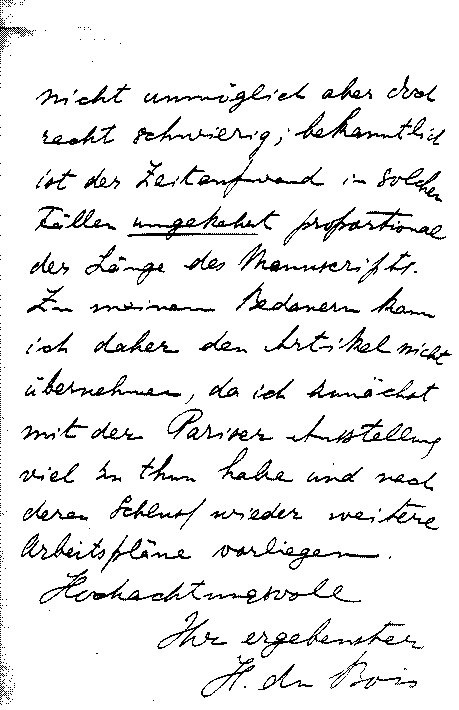 nicht unmöglich aber doch
recht schwierig; bekanntlich
ist der Zeitaufwand in solchen
Fällen umgekehrt proportional
der Länge des Manuscripts.
Zu meinem Bedauern kann
ich daher den Artikel nicht
übernehmen, da ich zunächst
mit der Pariser Ausstellung
viel zu thun habe und nach
deren Schluss wieder weitere
Arbeitspläne vorliegen.
Hochachtungsvoll
Ihr ergebenster
H. du Bois